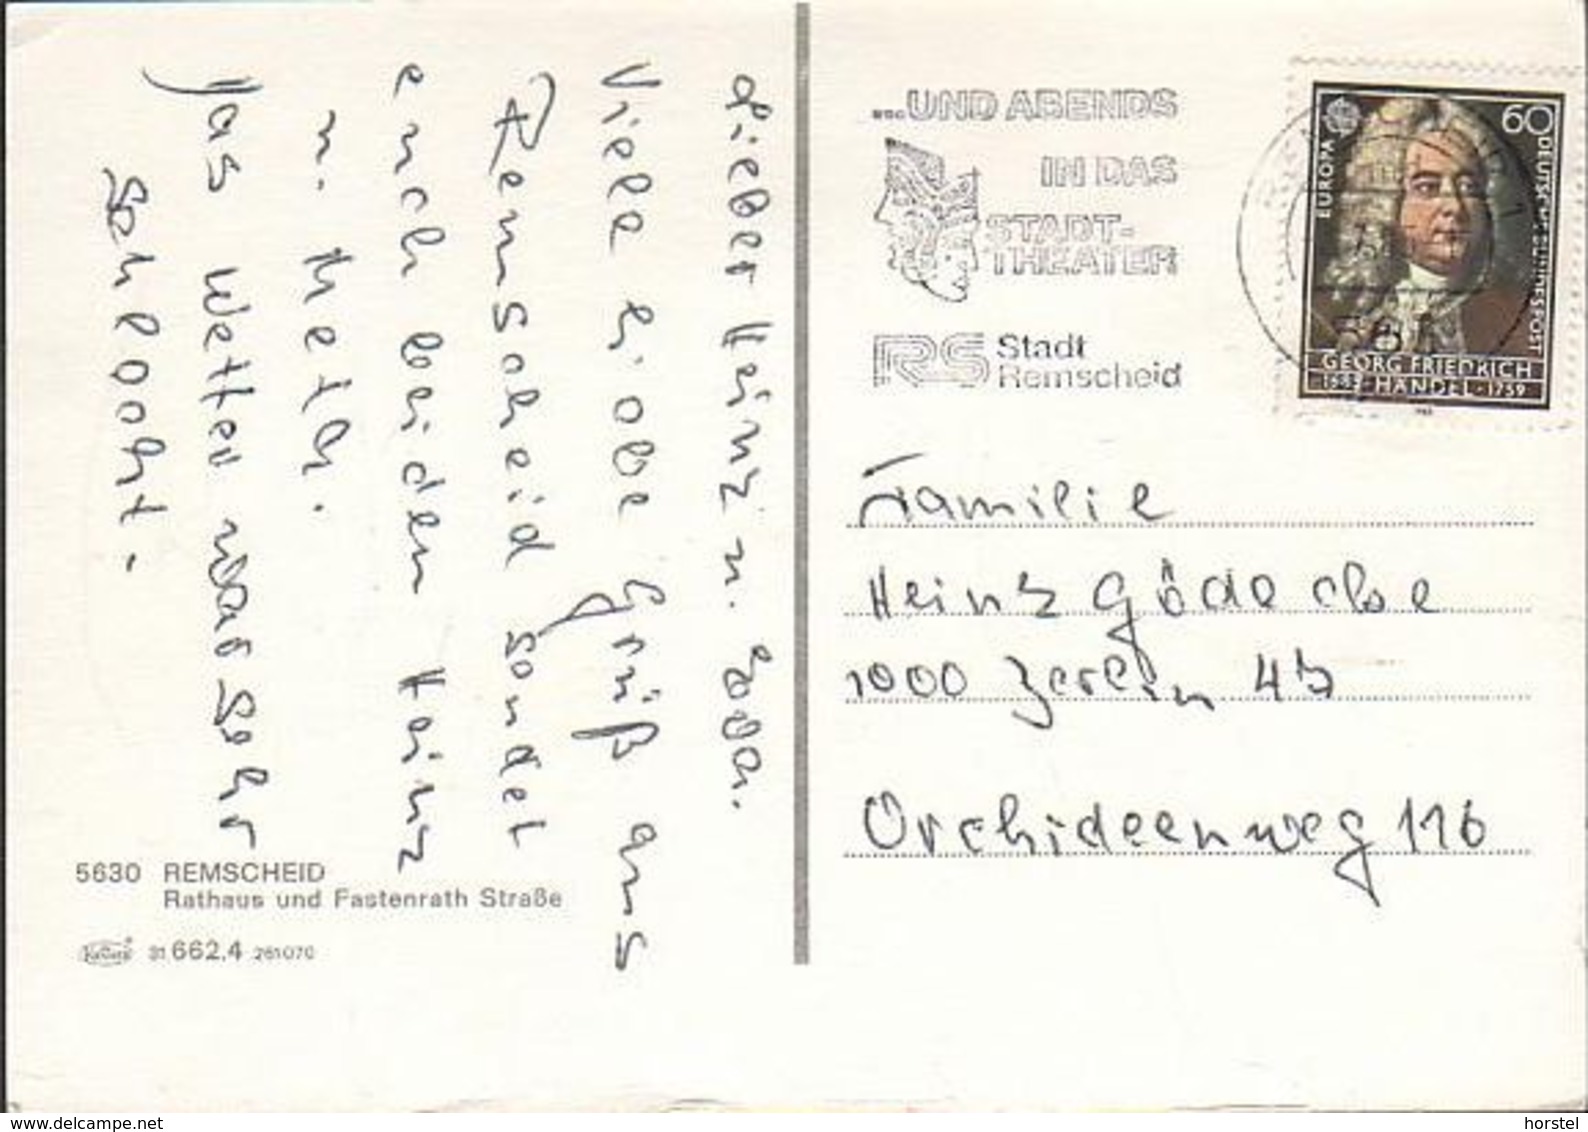 Lieber Heinz u. Edda.
Viele liebe Grüße aus
Remscheid sendet
euch beiden Heinz
u. Meta.
Das Wetter war sehr
schlecht.
5630 REMSCHEID
Rathaus und Fastenrath Straße
31 662,4 261070
...UND ABENDS
IN DAS
STADT-
THEATER
RS Stadt
Remscheid
EUROPA
60
DEUTSCHE BUNDESPOST
GEORG FRIEDRICH
1685 HÄNDEL · 1759
Familie
Heinz Gödecke
1000 Berlin 47
Orchideenweg 116
www.delcampe.net
horstel